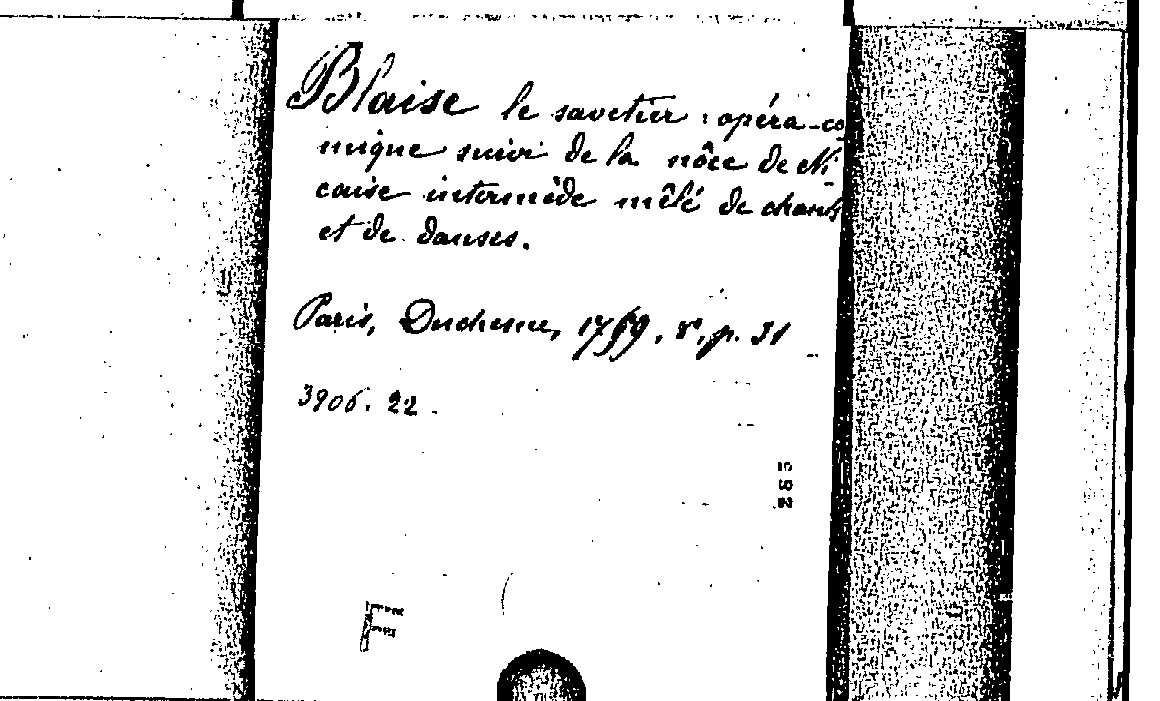 Blaise le savetier : opéra-co
mique suivi de la nôce de Ni-
caise intermède mêlé de chants
et de danses.
Paris, Duchesne, 1759. 8°, p. 31
3906. 22.
582
F